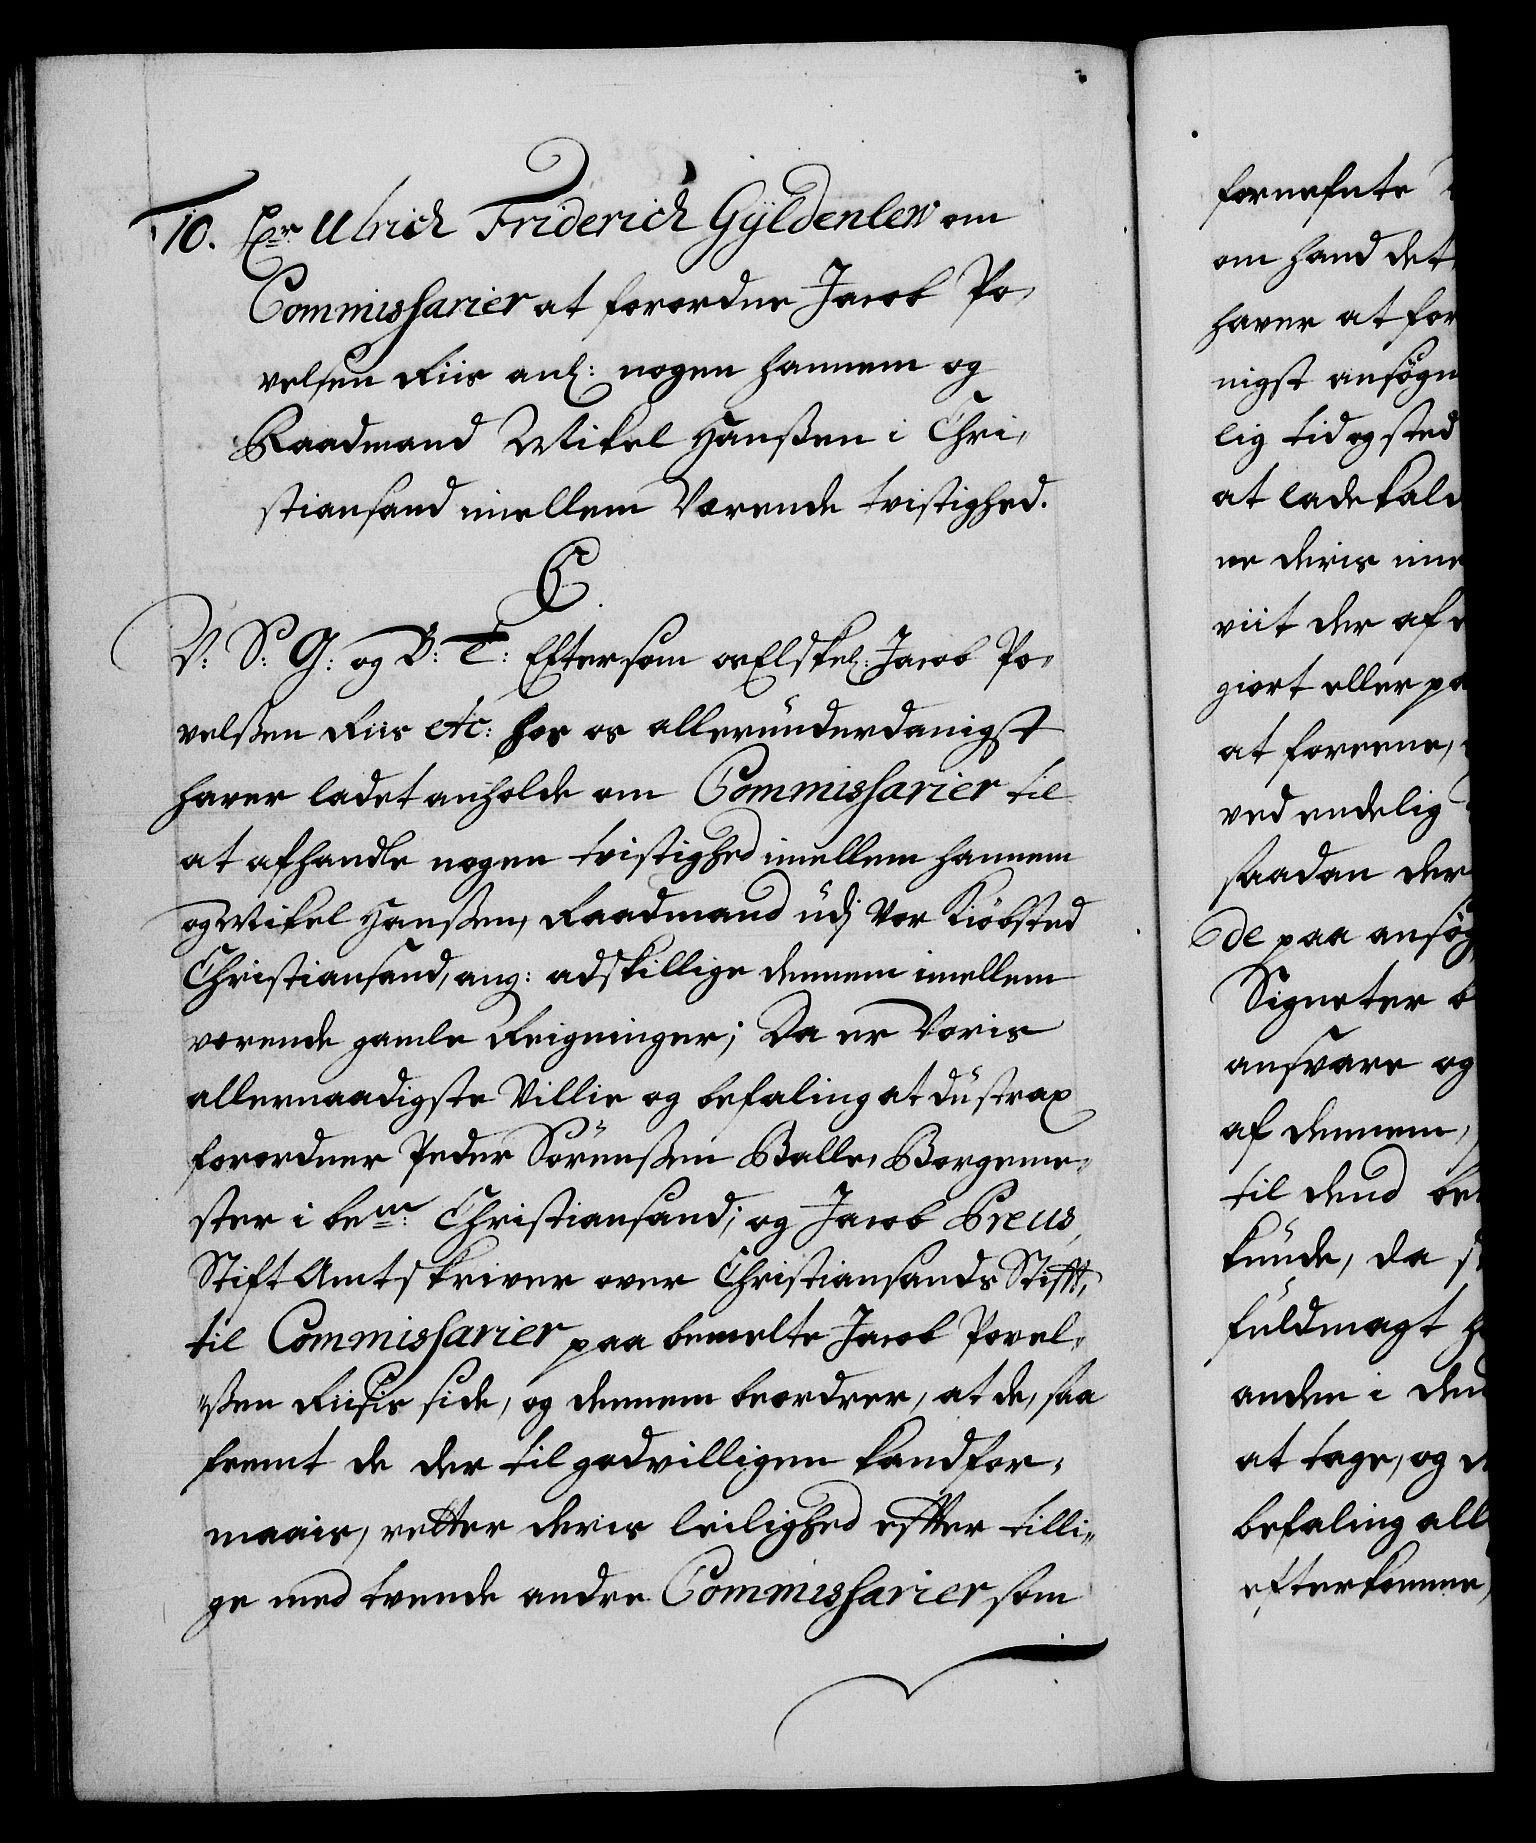 10. Hr. Ulrich Friderich Gyldenlew om
Commissarier at forordne Jacob Po-
velsen Riis anl: nogen hannem og
Raadmand Mikel Hanssen i Chri-
stiansand imellem Værende tvistighed.
C
V: S: G: og B: T: Eftersom os Elskel: Jacob Po-
velssen Riis etc: hos os allerunderdanigst
haver ladet anholde om Commissarier til
at afhandle nogen tvistighed imellem hannem
og Mikel Hanssen, Raadmand udj Vor Kiøbsted
Christiansand, ang: adskillige dennem imellem
værende gamle Reigninger; Da er Voris
allernaadigste Villie og befaling at du strax
forordner Peder Sørenssen Balle, Borgeme-
ster i bemr: Christiansand; og Jacob Preus,
Stift Amtskriver over Christiansands Stifft,
til Commissarier paa bemelte Jacob Povel-
ssen Riisis side, og dennem beordrer, at de, saa
fremt de der til godvilligen kand for-
maais, retter deris leilighed effter tilli-
ge med tvende andre Commissarier som
fornefnte
om hand det
haver at for
nigst ansøgn
lig tid og sted
at lade kald
ne deris ime
viit der af
giort eller pa
at foreene,
ved endelig
saadan der
de paa ansøg
Signeter b
ansvare og
af dennem,
til dend be
kunde, da s
fuldmagt h
anden i den
at tage, og d
befaling all
efterkomme,